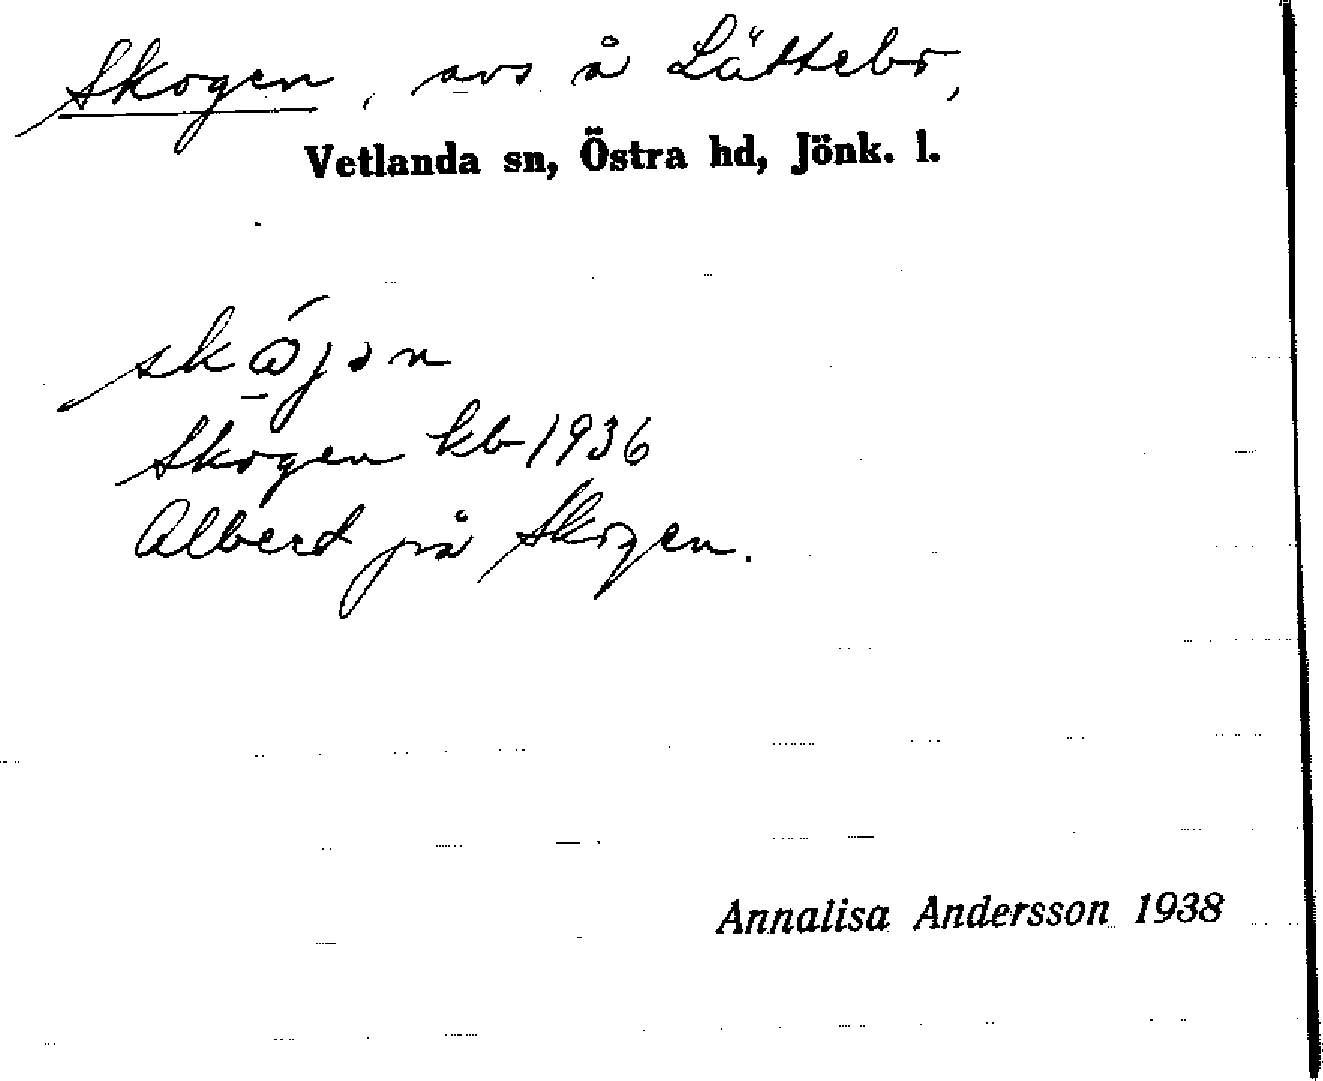 Skogen, avs å Lättebo,
Vetlanda sn, Östra hd, Jönk. l.
Skogen kb 1936
Albert på Skogen.
Annalisa Andersson 1938